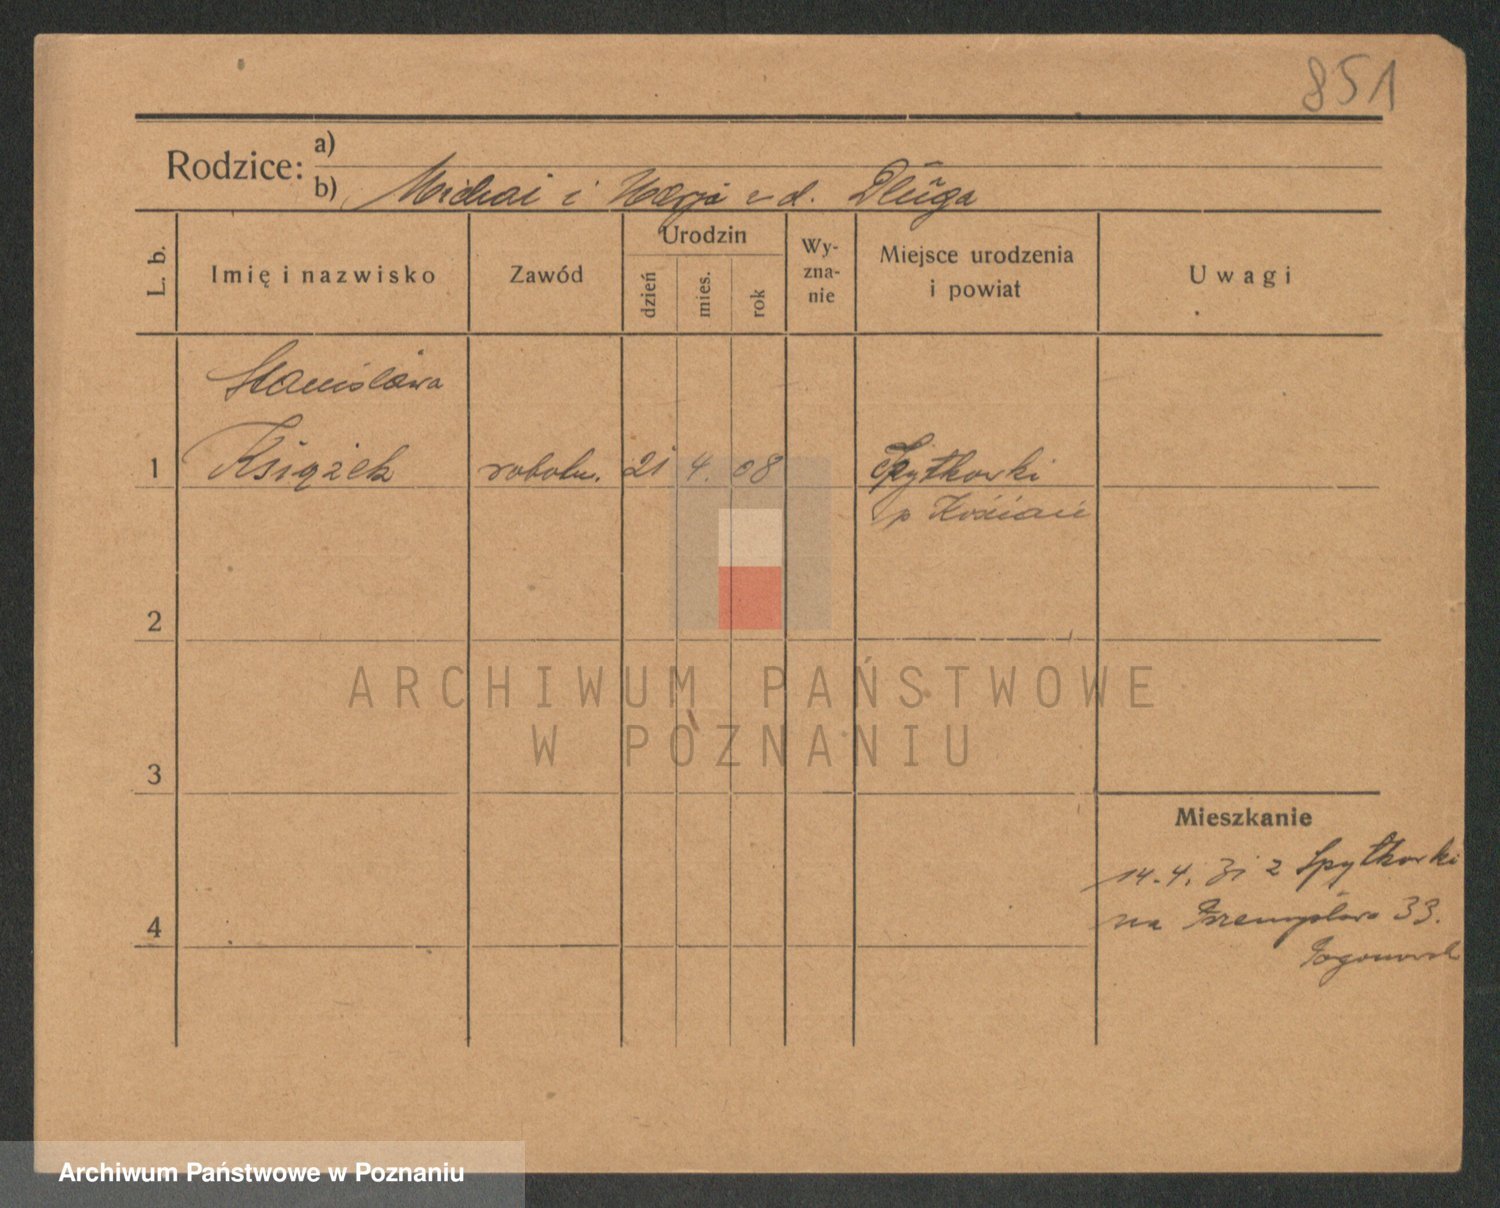 851
Rodzice:
a)
b) Michał i Marja z d. Długa
L. b.
Imię i nazwisko
Zawód
Urodzin
dzień
mies.
rok
Wy-
zna-
nie
Miejsce urodzenia
i powiat
Uwagi
Stanisława
1 Książek robotn. 21 4. 08 Spytkowki
p Kościan
2
3
Mieszkanie
14.4.31 z Spytkowki
4
na Przemysława 33.
ARCHIWUM PAŃSTWOWE
W POZNANIU
Archiwum Państwowe w Poznaniu